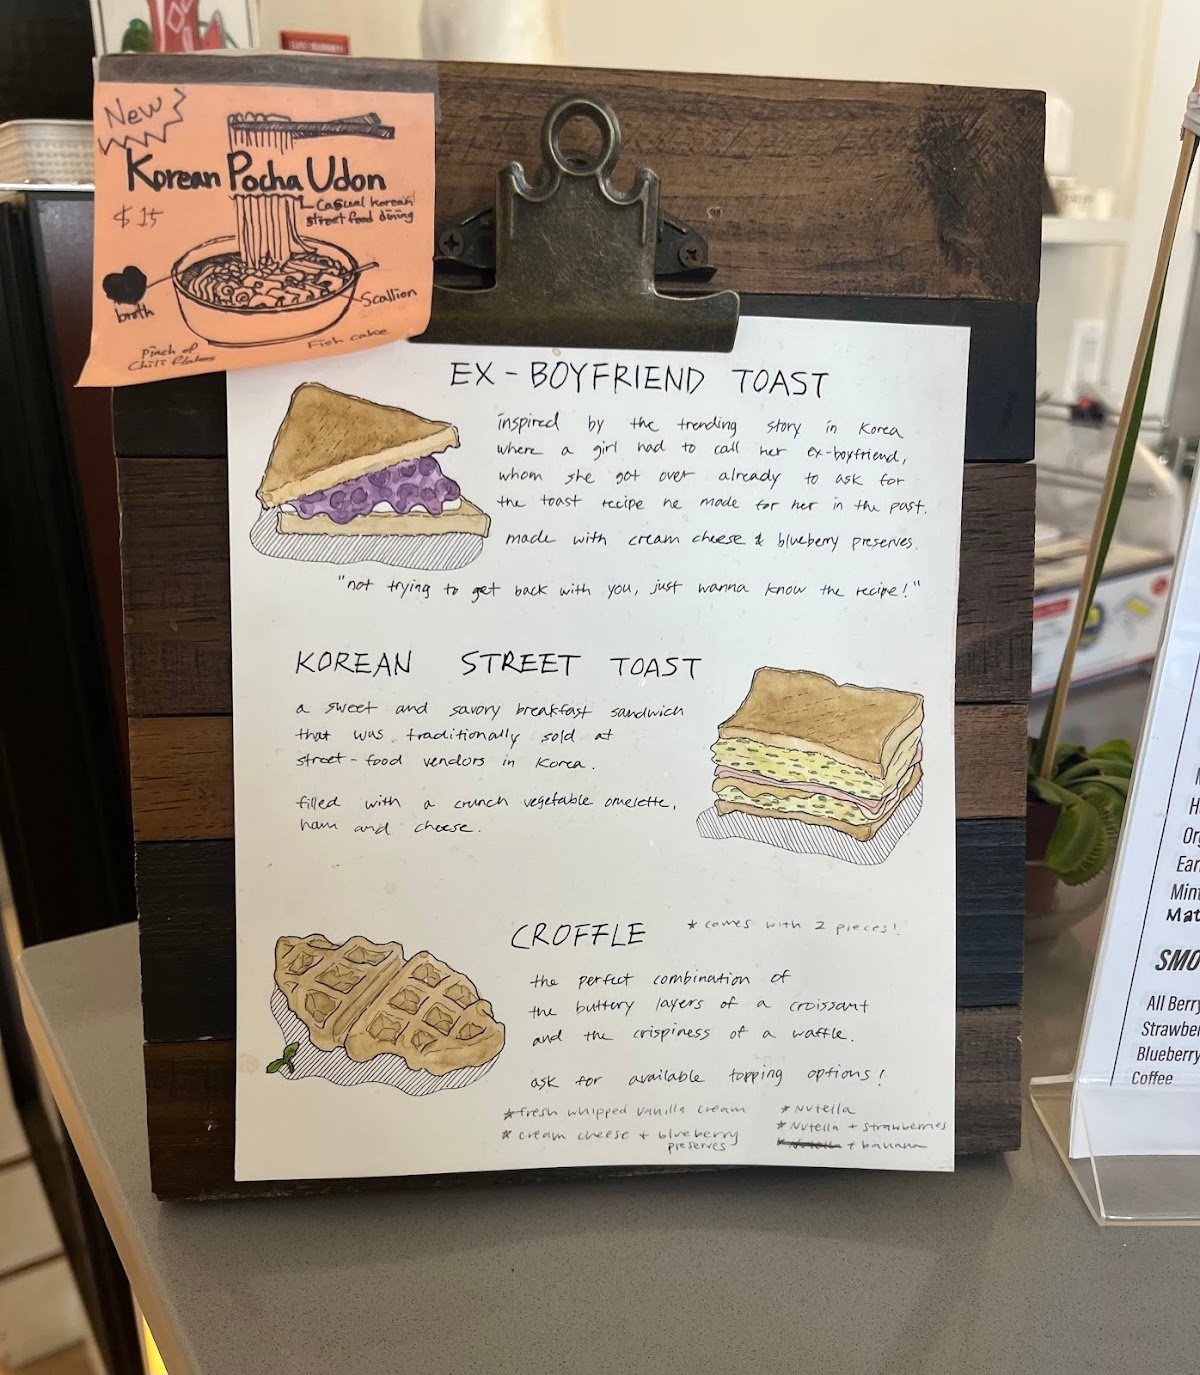 New
Korean Pocha Udon
Casual Korean
street food dining
$15
broth
Scallion
Pinch of
Chili flakes
Fish cake
EX-BOYFRIEND TOAST
inspired by the trending story in Korea
where a girl had to call her ex-boyfriend,
whom she got over already to ask for
the toast recipe he made for her in the past.
made with cream cheese & blueberry preserves.
"not trying to get back with you, just wanna know the recipe!"
KOREAN STREET TOAST
a sweet and savory breakfast sandwich
that was traditionally sold at
street-food vendors in Korea.
filled with a crunch vegetable omelette,
ham and cheese.
CROFFLE
*comes with 2 pieces!
the perfect combination of
the buttery layers of a croissant
and the crispiness of a waffle.
ask for available topping options!
*fresh whipped vanilla cream
*cream cheese + blueberry
preserves
*Nutella
*Nutella + strawberries
*Nutella + banana
Org
Ear
Mint
Mat
SMO
All Berry
Strawber
Blueberry
Coffee